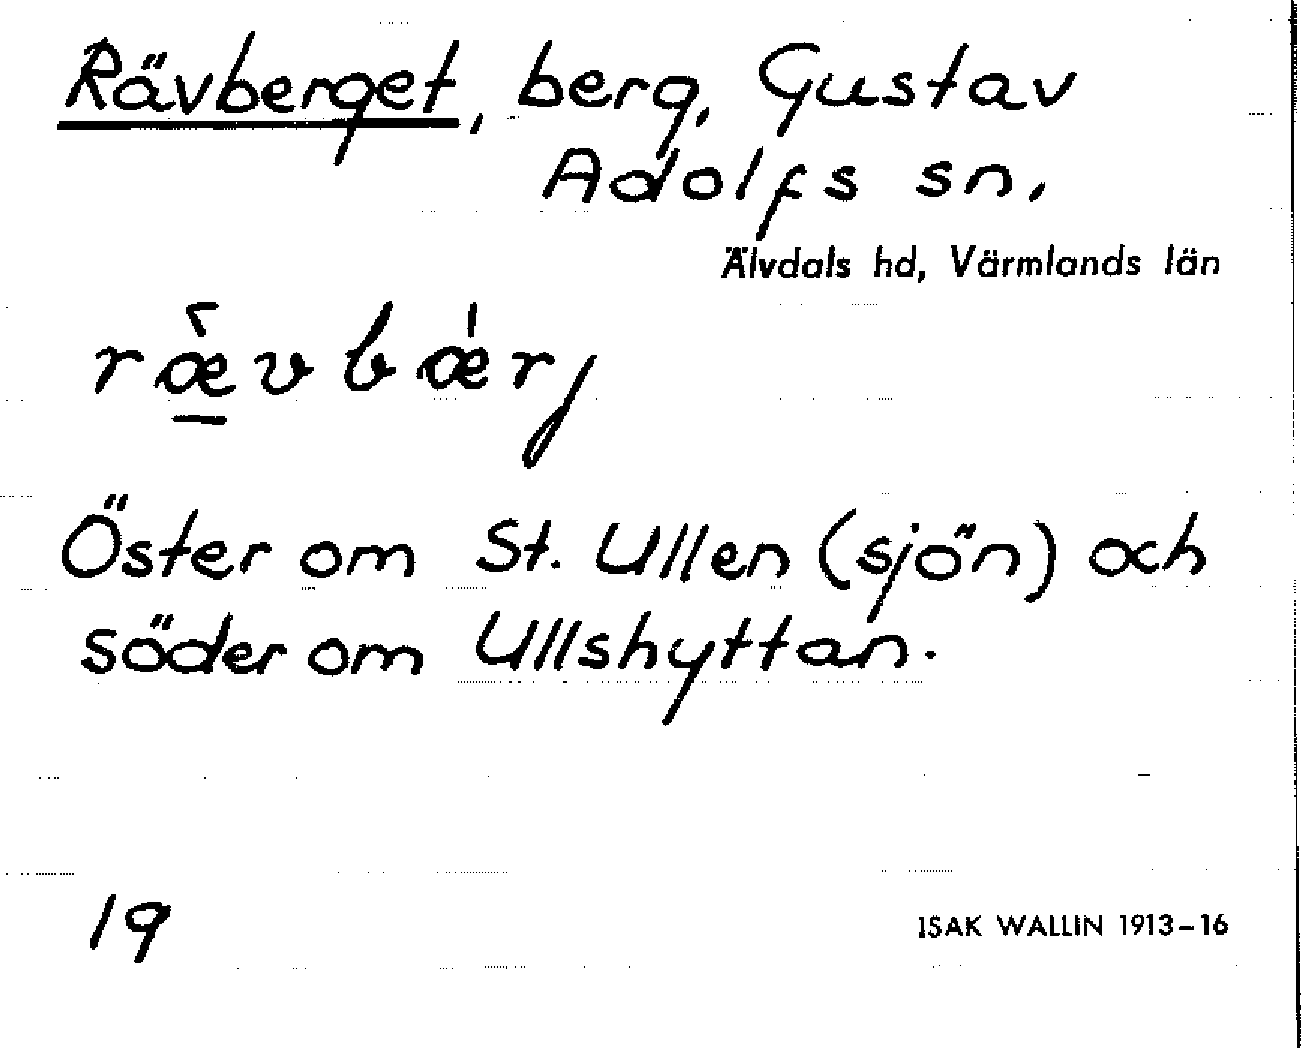 Rävberget, berg, Gustav
Adolfs sn,
Älvdals hd, Värmlands län
ræ̀vbǽrj
Öster om St. Ullen (sjön) och
söder om Ullshyttan.
19
ISAK WALLIN 1913-16